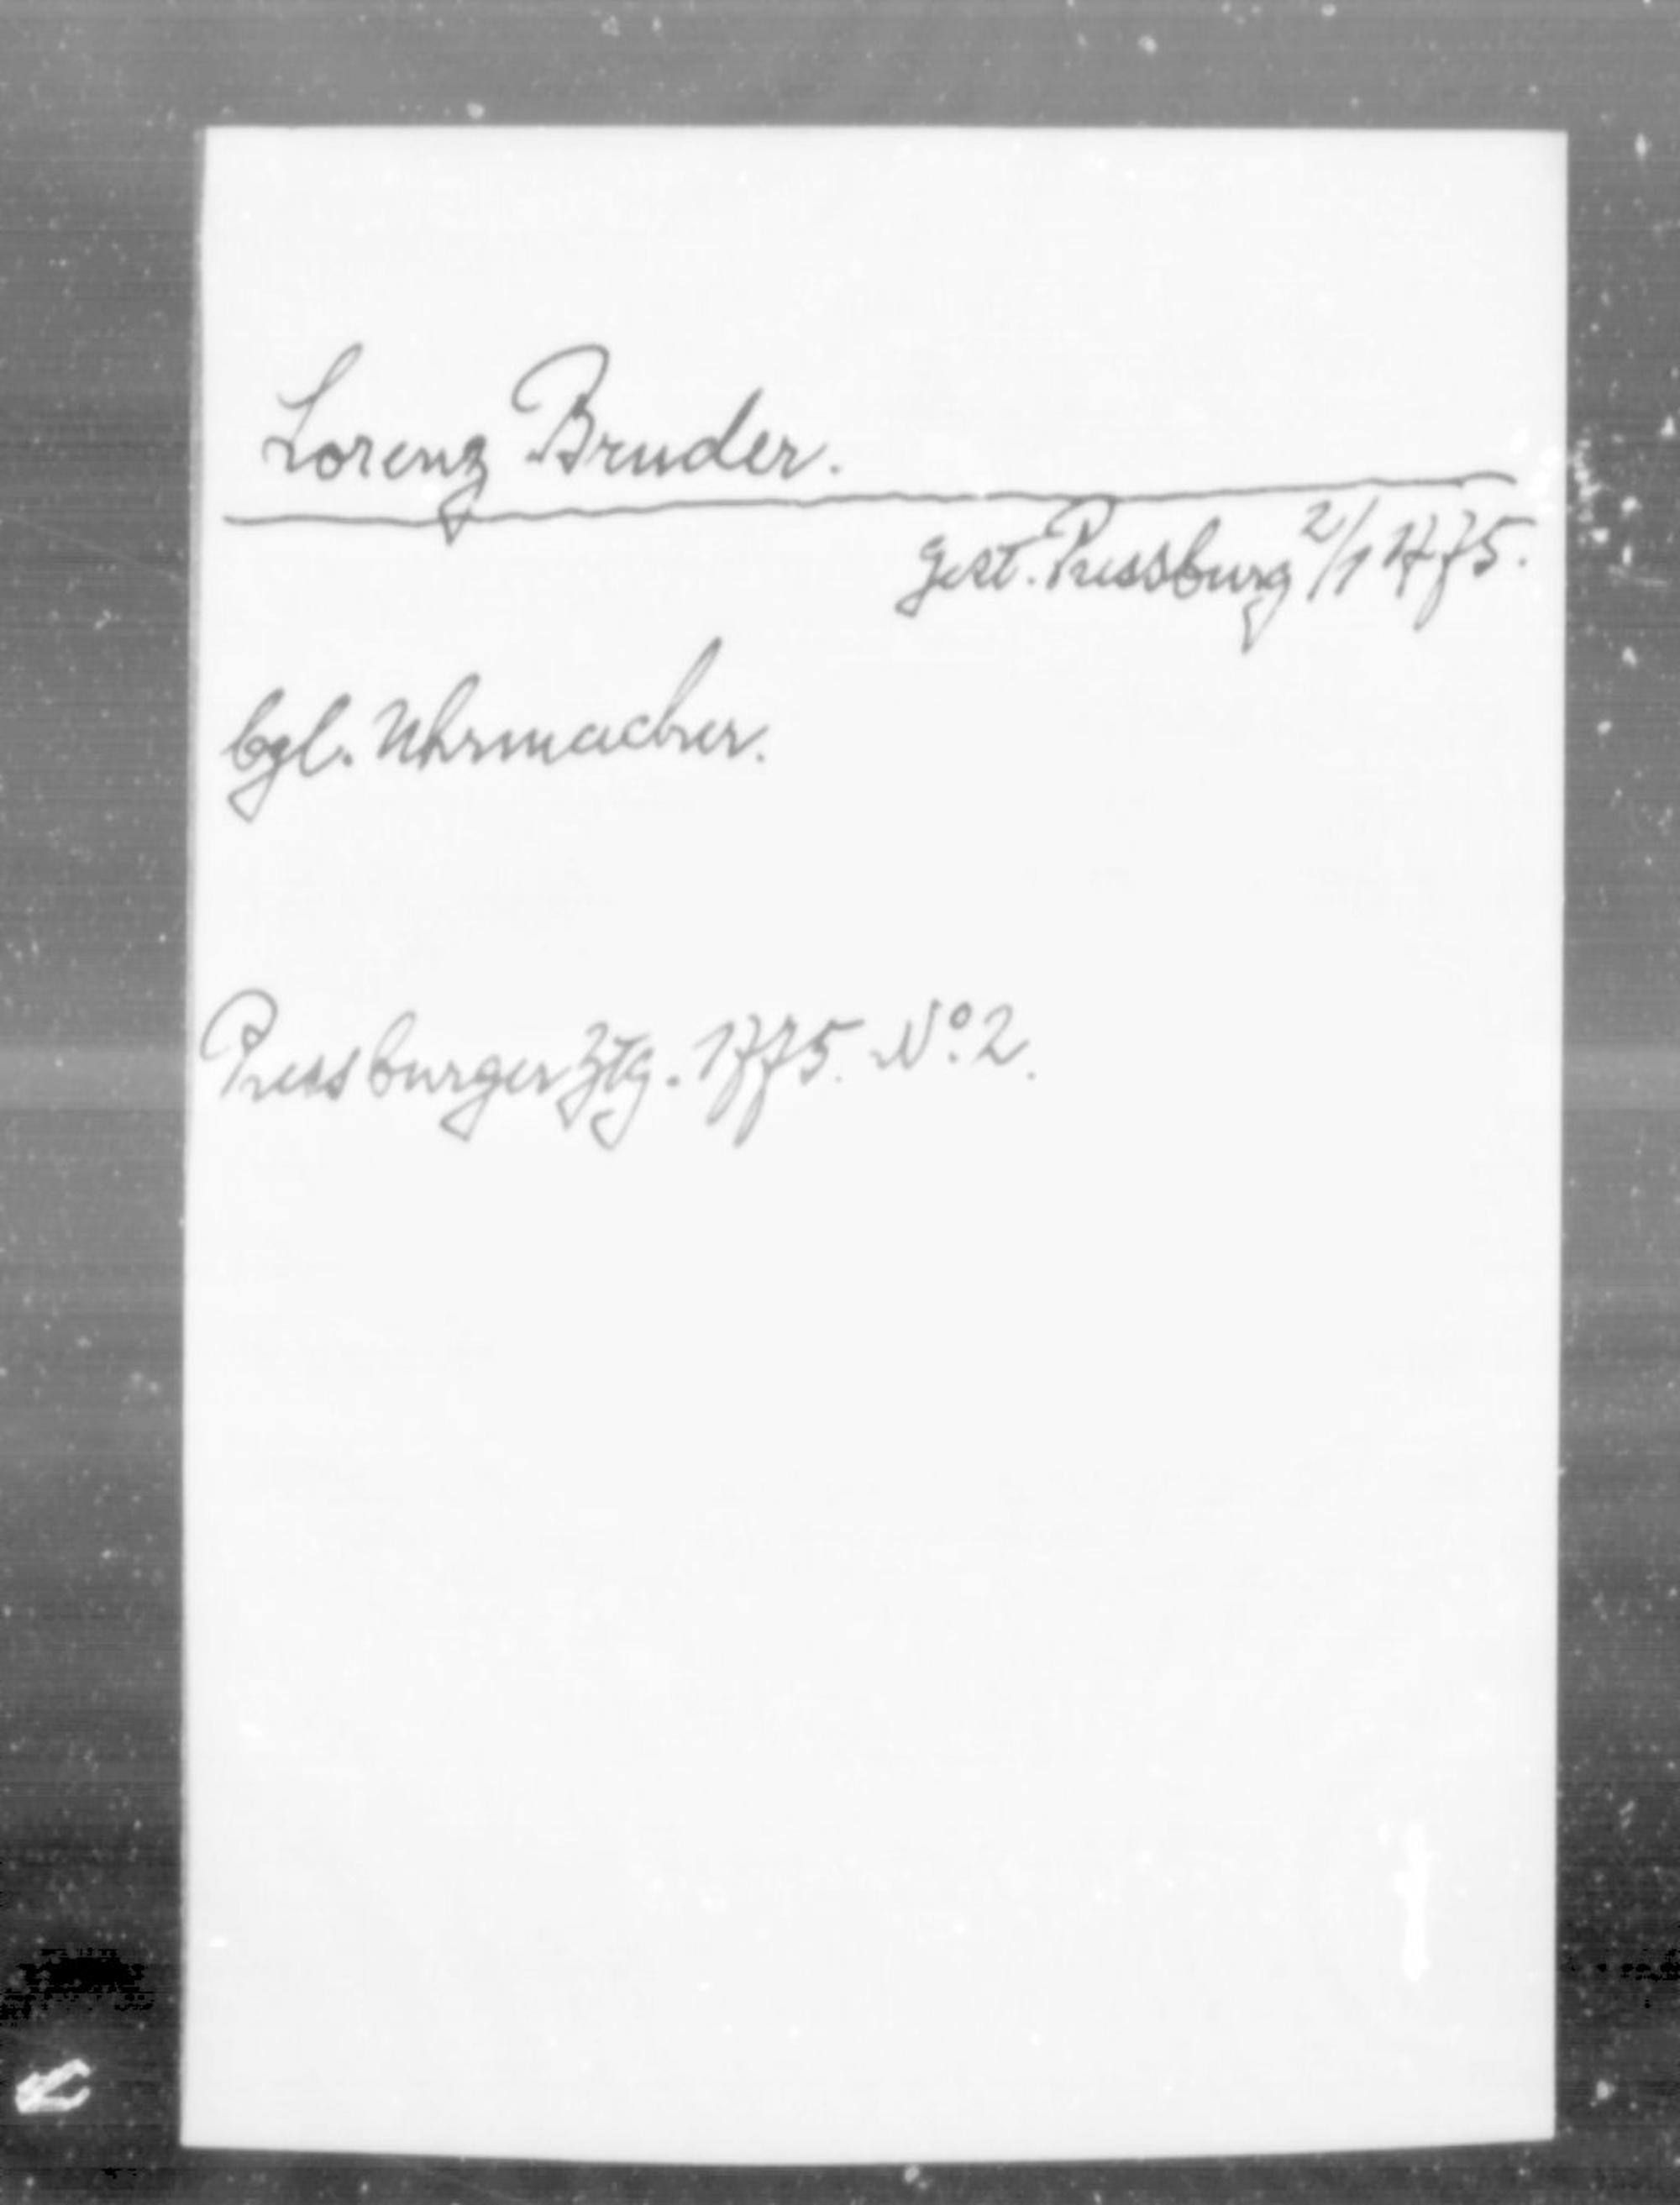 Lorenz Bruder.
gest. Pressburg 2/1 1775.
bgl. Uhrmacher.
Pressburger Ztg. 1775. No. 2.